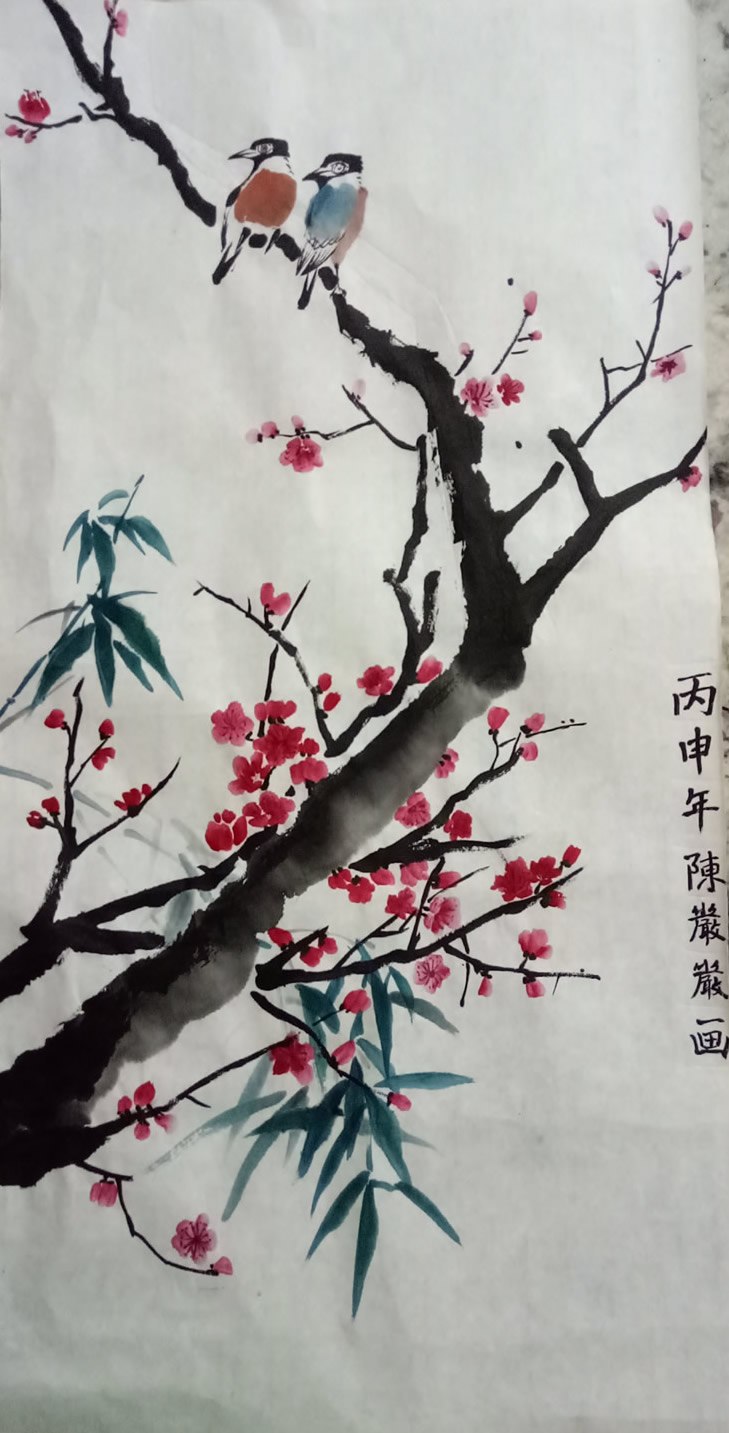 丙申年陳巖巖画